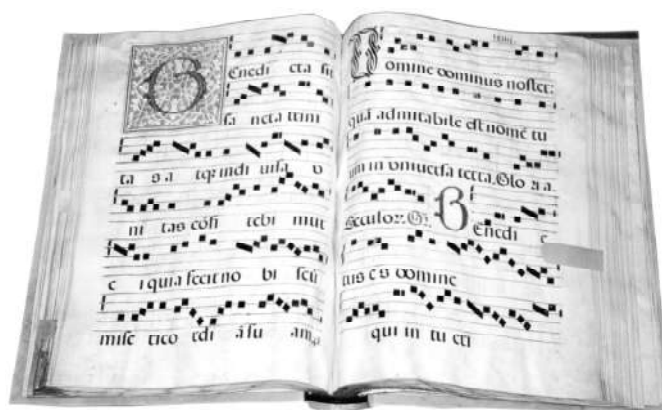 Enedi cta sit
sa ncta trini
ta s a tqȝ indi uisa v
ni tas cōfi tebi mur
e i quia fecit no bi scū
misc rico rdi ā su am
omine dominus noster:
quā admirabile est nomē tu
um in vniuersa terra. Glo ria
Seculoꝝ. B Enedi c
tus e s domine
qui in tu eri